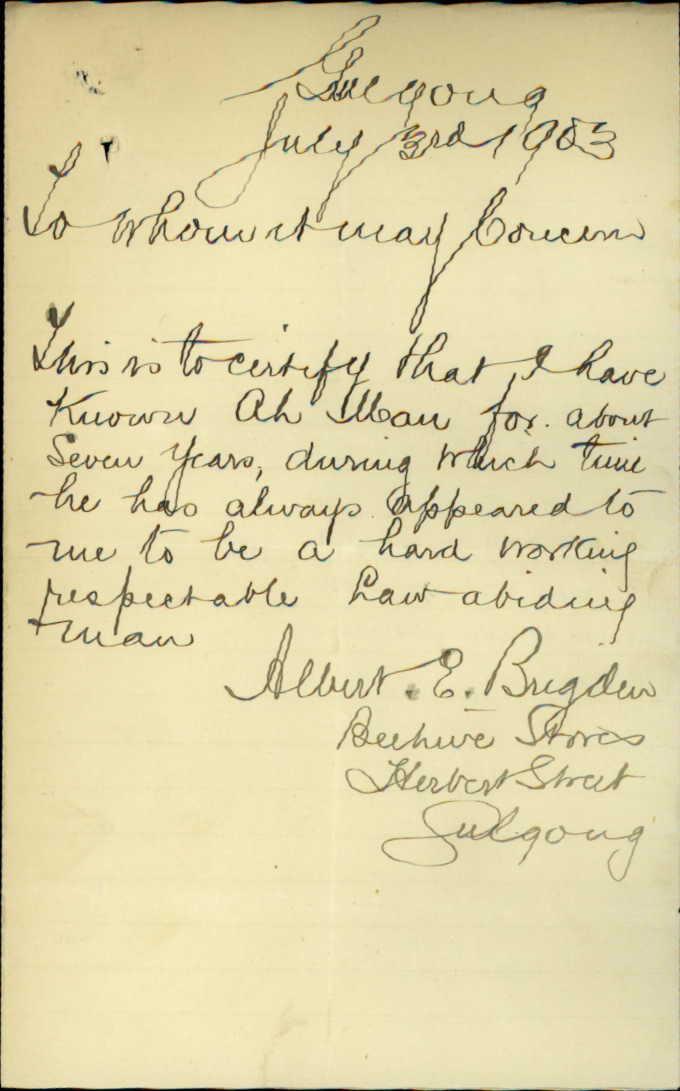 Gulgong
July 3rd 1903
To whom it may Concern
This is to certify that I have
Known Ah Man for about
Seven Years, during which time
he has always appeared to
me to be a hard working
respectable Law abiding
man
Albert. E. Brigden
Beehive Stores
Herbert Street
Gulgong